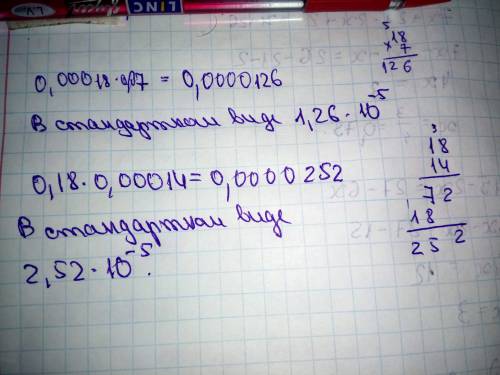 LINC
0,00018·0,07 = 0,0000126
В стандартном виде 1,26·10⁻⁵
0,18·0,00014=0,0000252
В стандартном виде
2,52·10⁻⁵.
5
18
×7
126
3
18
14
72
18
252